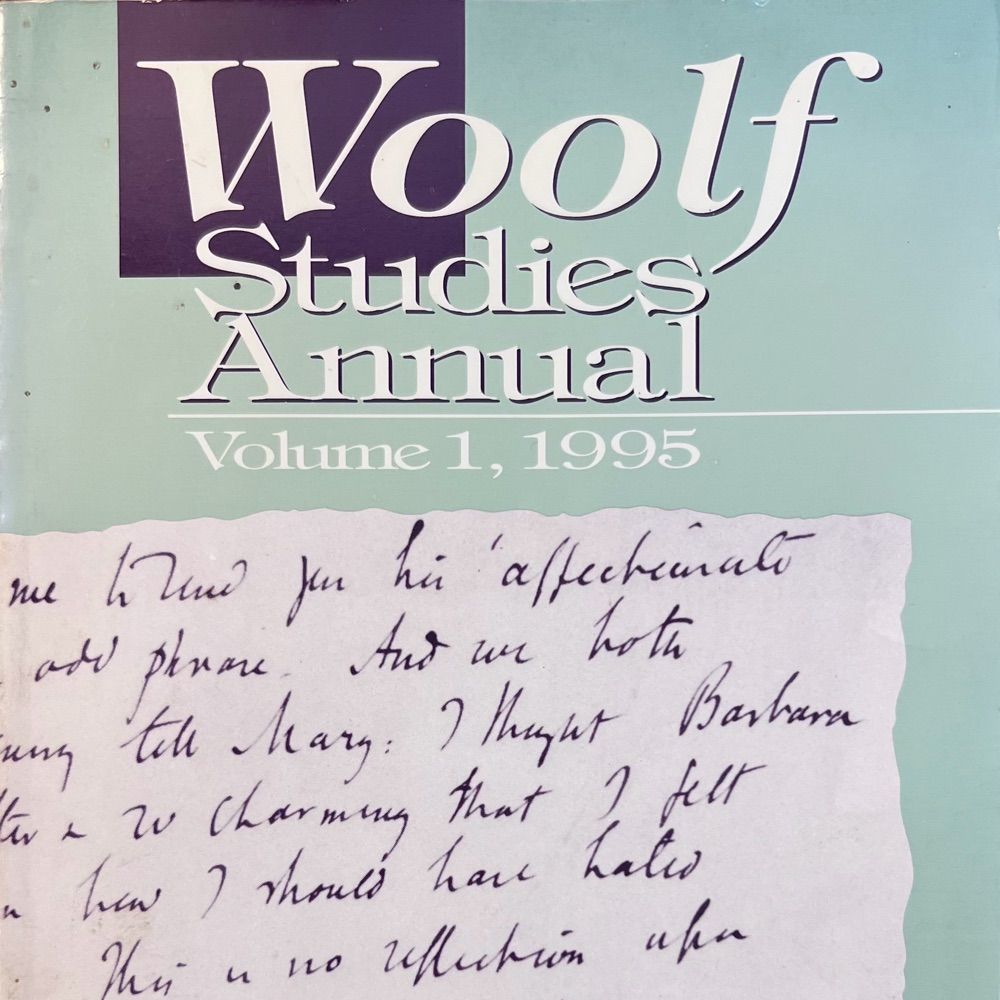 Woolf
Studies
Annual
Volume 1, 1995
me to send you his 'affectionate
odd phrase. And we both
tell Mary: I thought Barbara
so charming that I felt
how I should have hated
This is no reflection upon